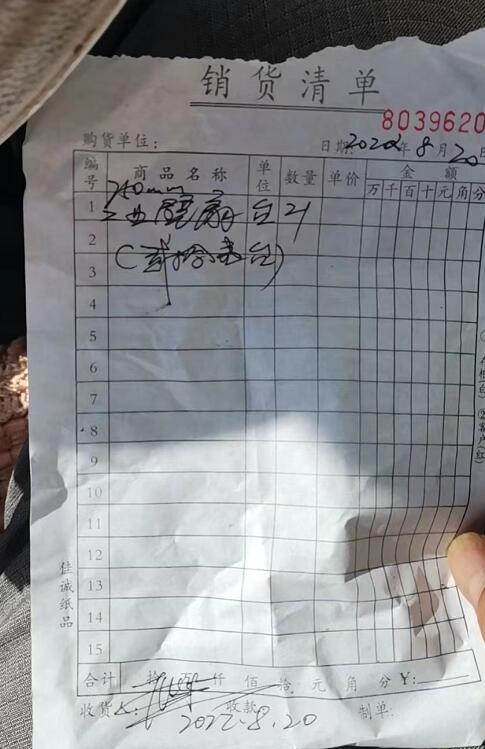 销货清单
8039620
购货单位： 日期：2022年8月20日
编号 商品名称 单位 数量 单价 金额
万 千 百 十 元 角 分
740mm
1 工业壁扇 台 21
2
(贰拾壹台)
3
4
5
6
7
8
9
10
11
12
13
14
15
合计 拾 万 仟 佰 拾 元 角 分 ¥：
收货人： 收款 制单：
2022.8.20
佳诚纸品
②客户(红)